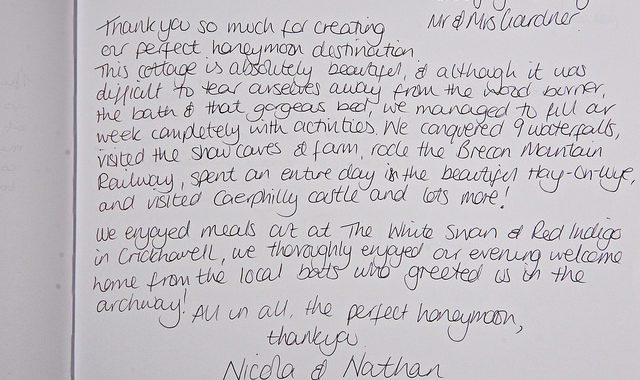 Mr & Mrs Gardner.
Thankyou so much for creating
our perfect honeymoon destination
This cottage is absolutely beautiful, & although it was
difficult to tear ourselves away from the wood burner,
the bath & that gorgeous bed, we managed to fill our
week completely with activities. We conquered 9 waterfalls,
visited the show caves & farm, rode the Brecon Mountain
Railway, spent an entire day in the beautiful Hay-On-Wye,
and visited Caerphilly castle and lots more!
We enjoyed meals out at The White Swan & Red Indigo
in Crickhowell, we thoroughly enjoyed our evening welcome
home from the local bats who greeted us in the
archway! All in all, the perfect honeymoon,
thankyou
Nicola & Nathan